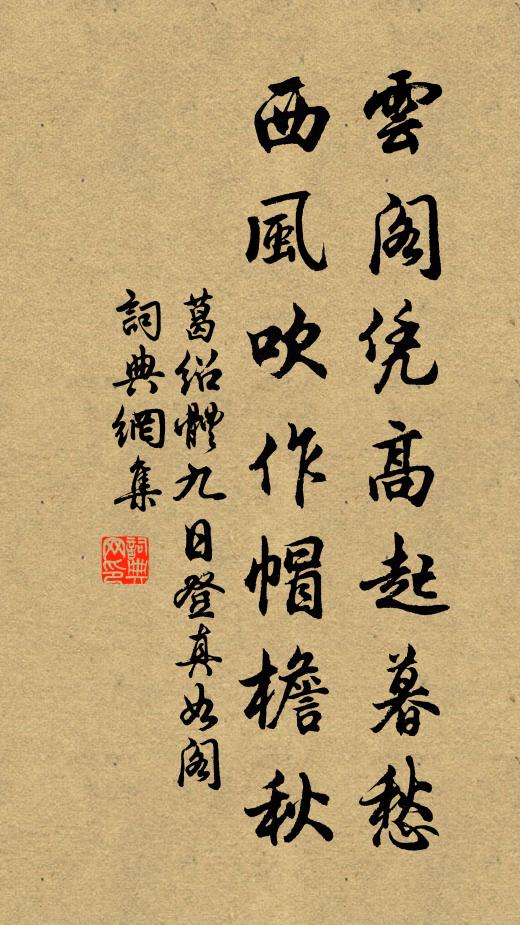 雲阁凭高起暮愁
西風吹作帽檐秋
葛绍體九日登真如阁
詞典網集
詞典网印